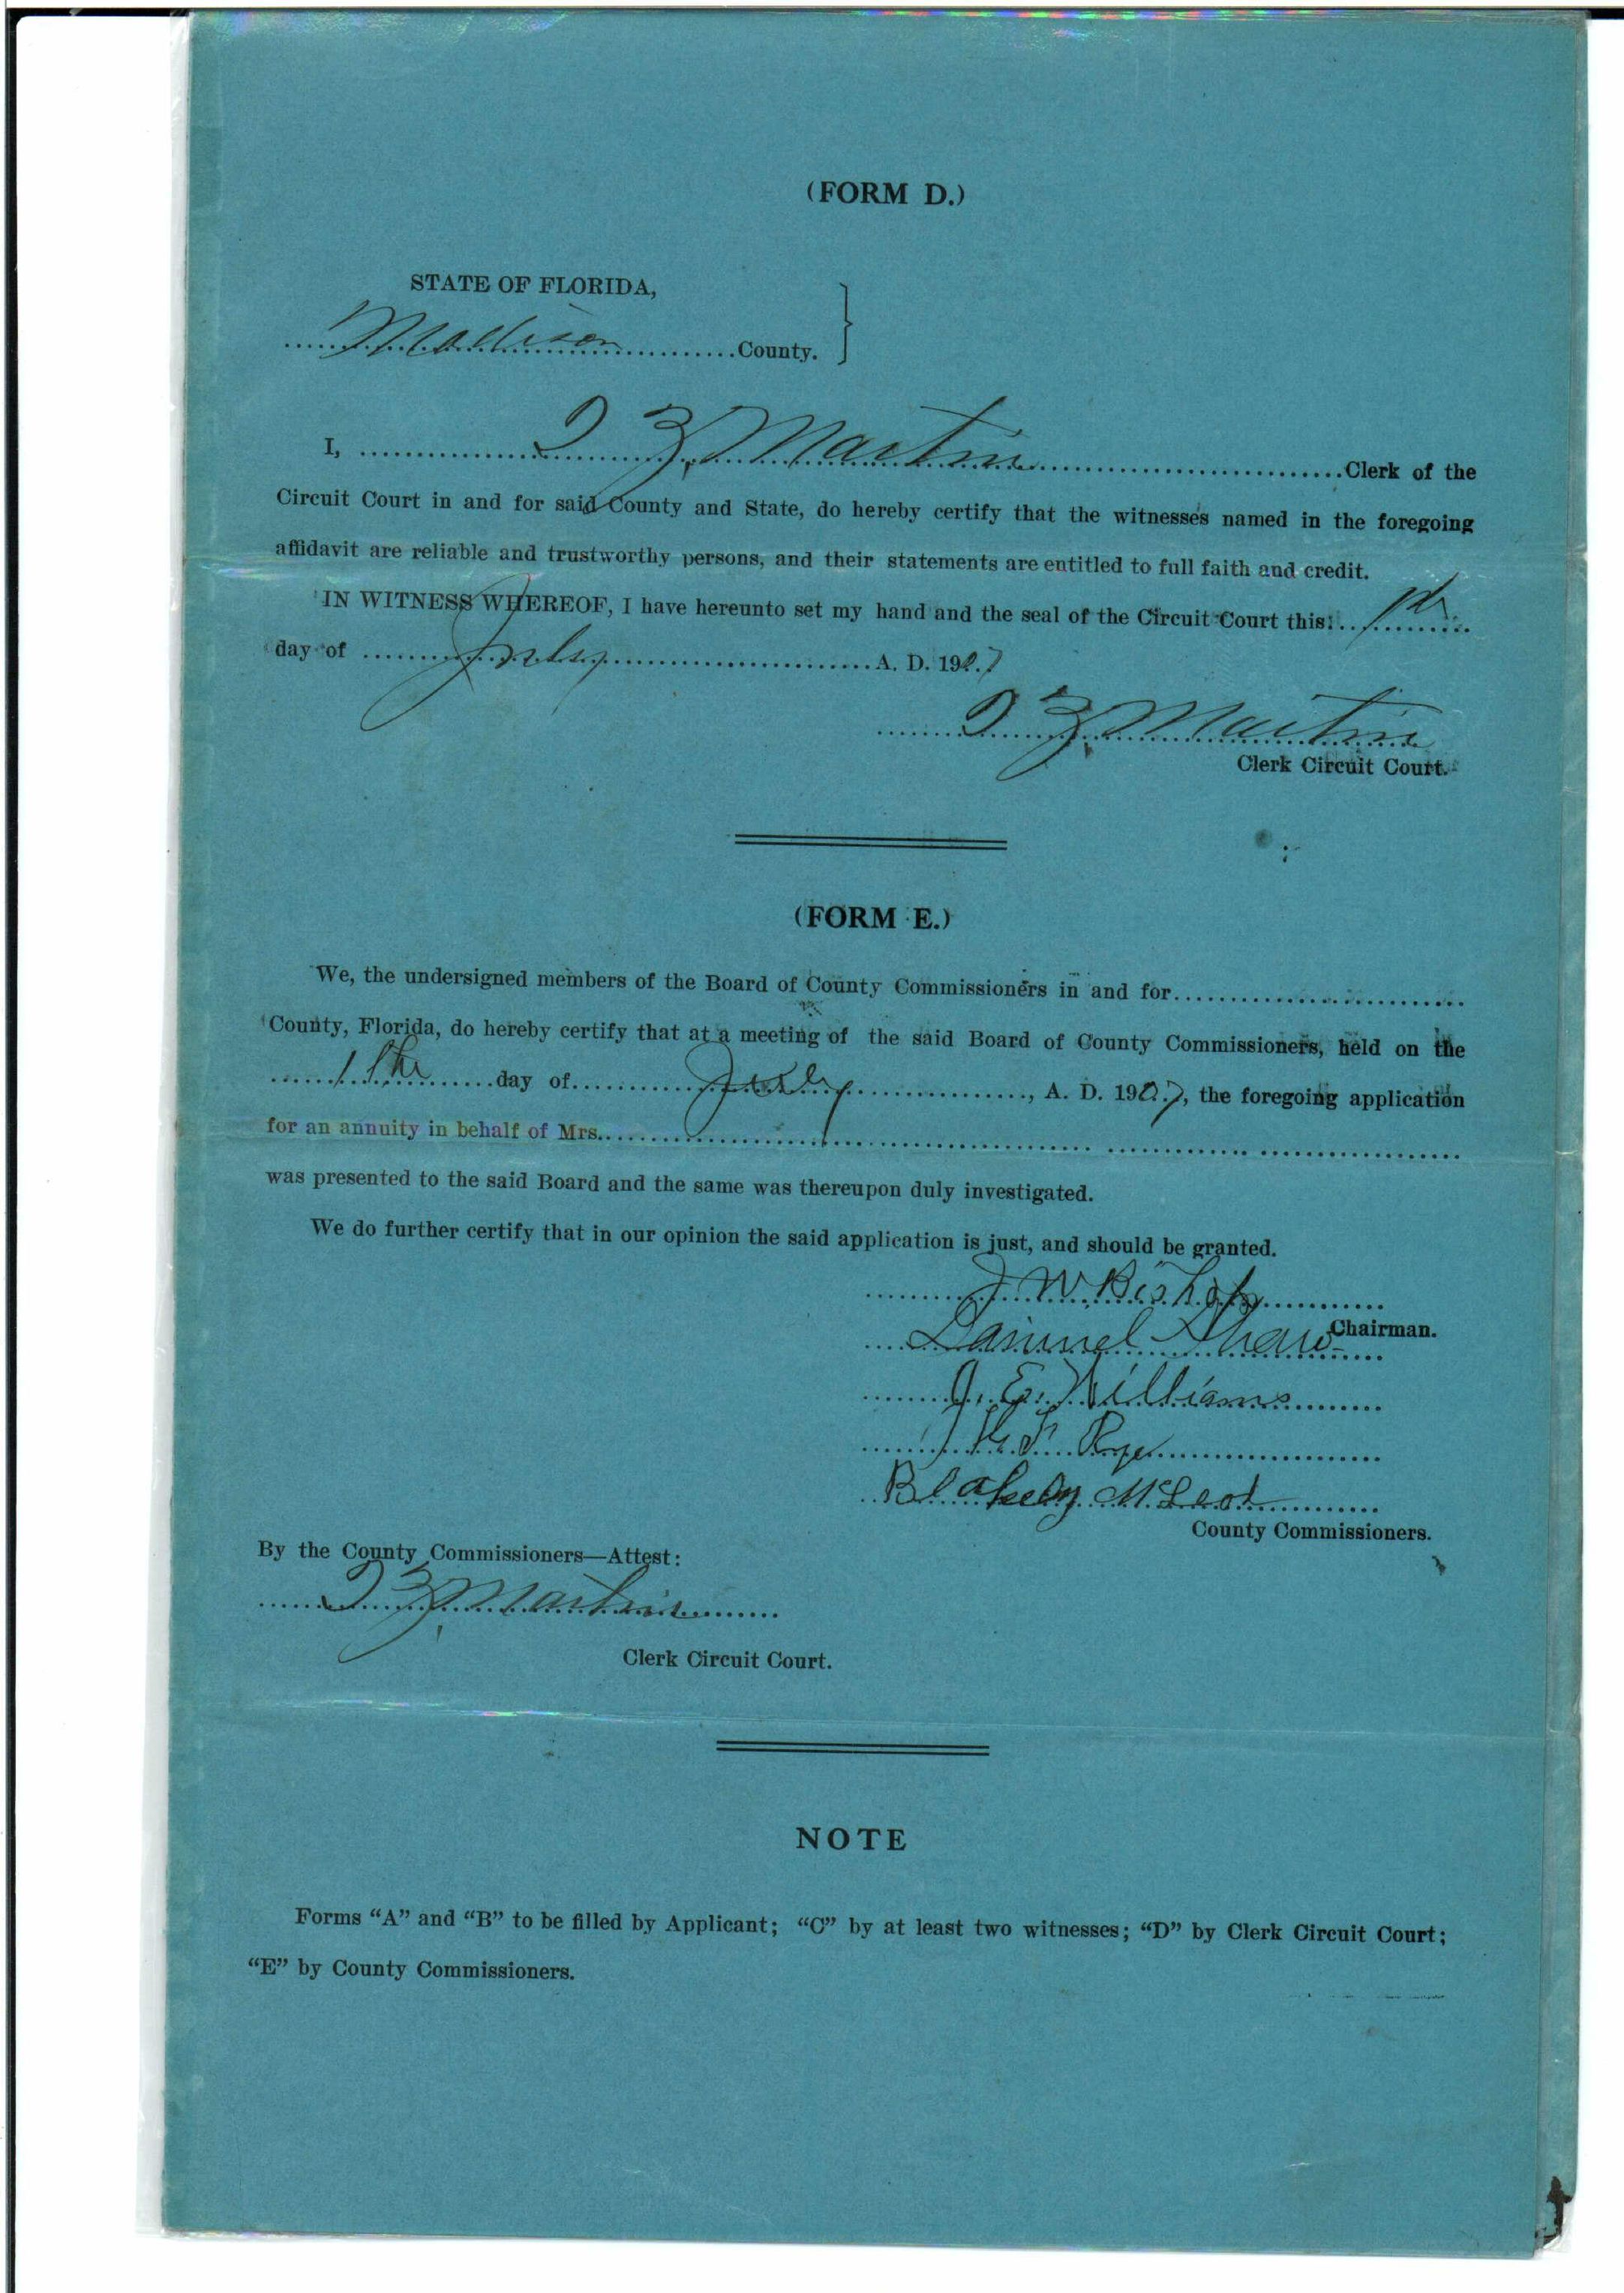 (FORM D.)
STATE OF FLORIDA,
Madison County.
I, Martin Clerk of the
Circuit Court in and for said County and State, do hereby certify that the witnesses named in the foregoing
affidavit are reliable and trustworthy persons, and their statements are entitled to full faith and credit.
IN WITNESS WHEREOF, I have hereunto set my hand and the seal of the Circuit Court this 1st
day of July A. D. 1907
Martin
Clerk Circuit Court.
(FORM E.)
We, the undersigned members of the Board of County Commissioners in and for
County, Florida, do hereby certify that at a meeting of the said Board of County Commissioners, held on the
1st day of July, A. D. 1907, the foregoing application
for an annuity in behalf of Mrs.
was presented to the said Board and the same was thereupon duly investigated.
We do further certify that in our opinion the said application is just, and should be granted.
J W Bishop
Chairman.
Samuel Shaw
J. E. Williams
Rye
Blakely McLeod
County Commissioners.
By the County Commissioners—Attest:
Martin
Clerk Circuit Court.
NOTE
Forms "A" and "B" to be filled by Applicant; "C" by at least two witnesses; "D" by Clerk Circuit Court;
"E" by County Commissioners.